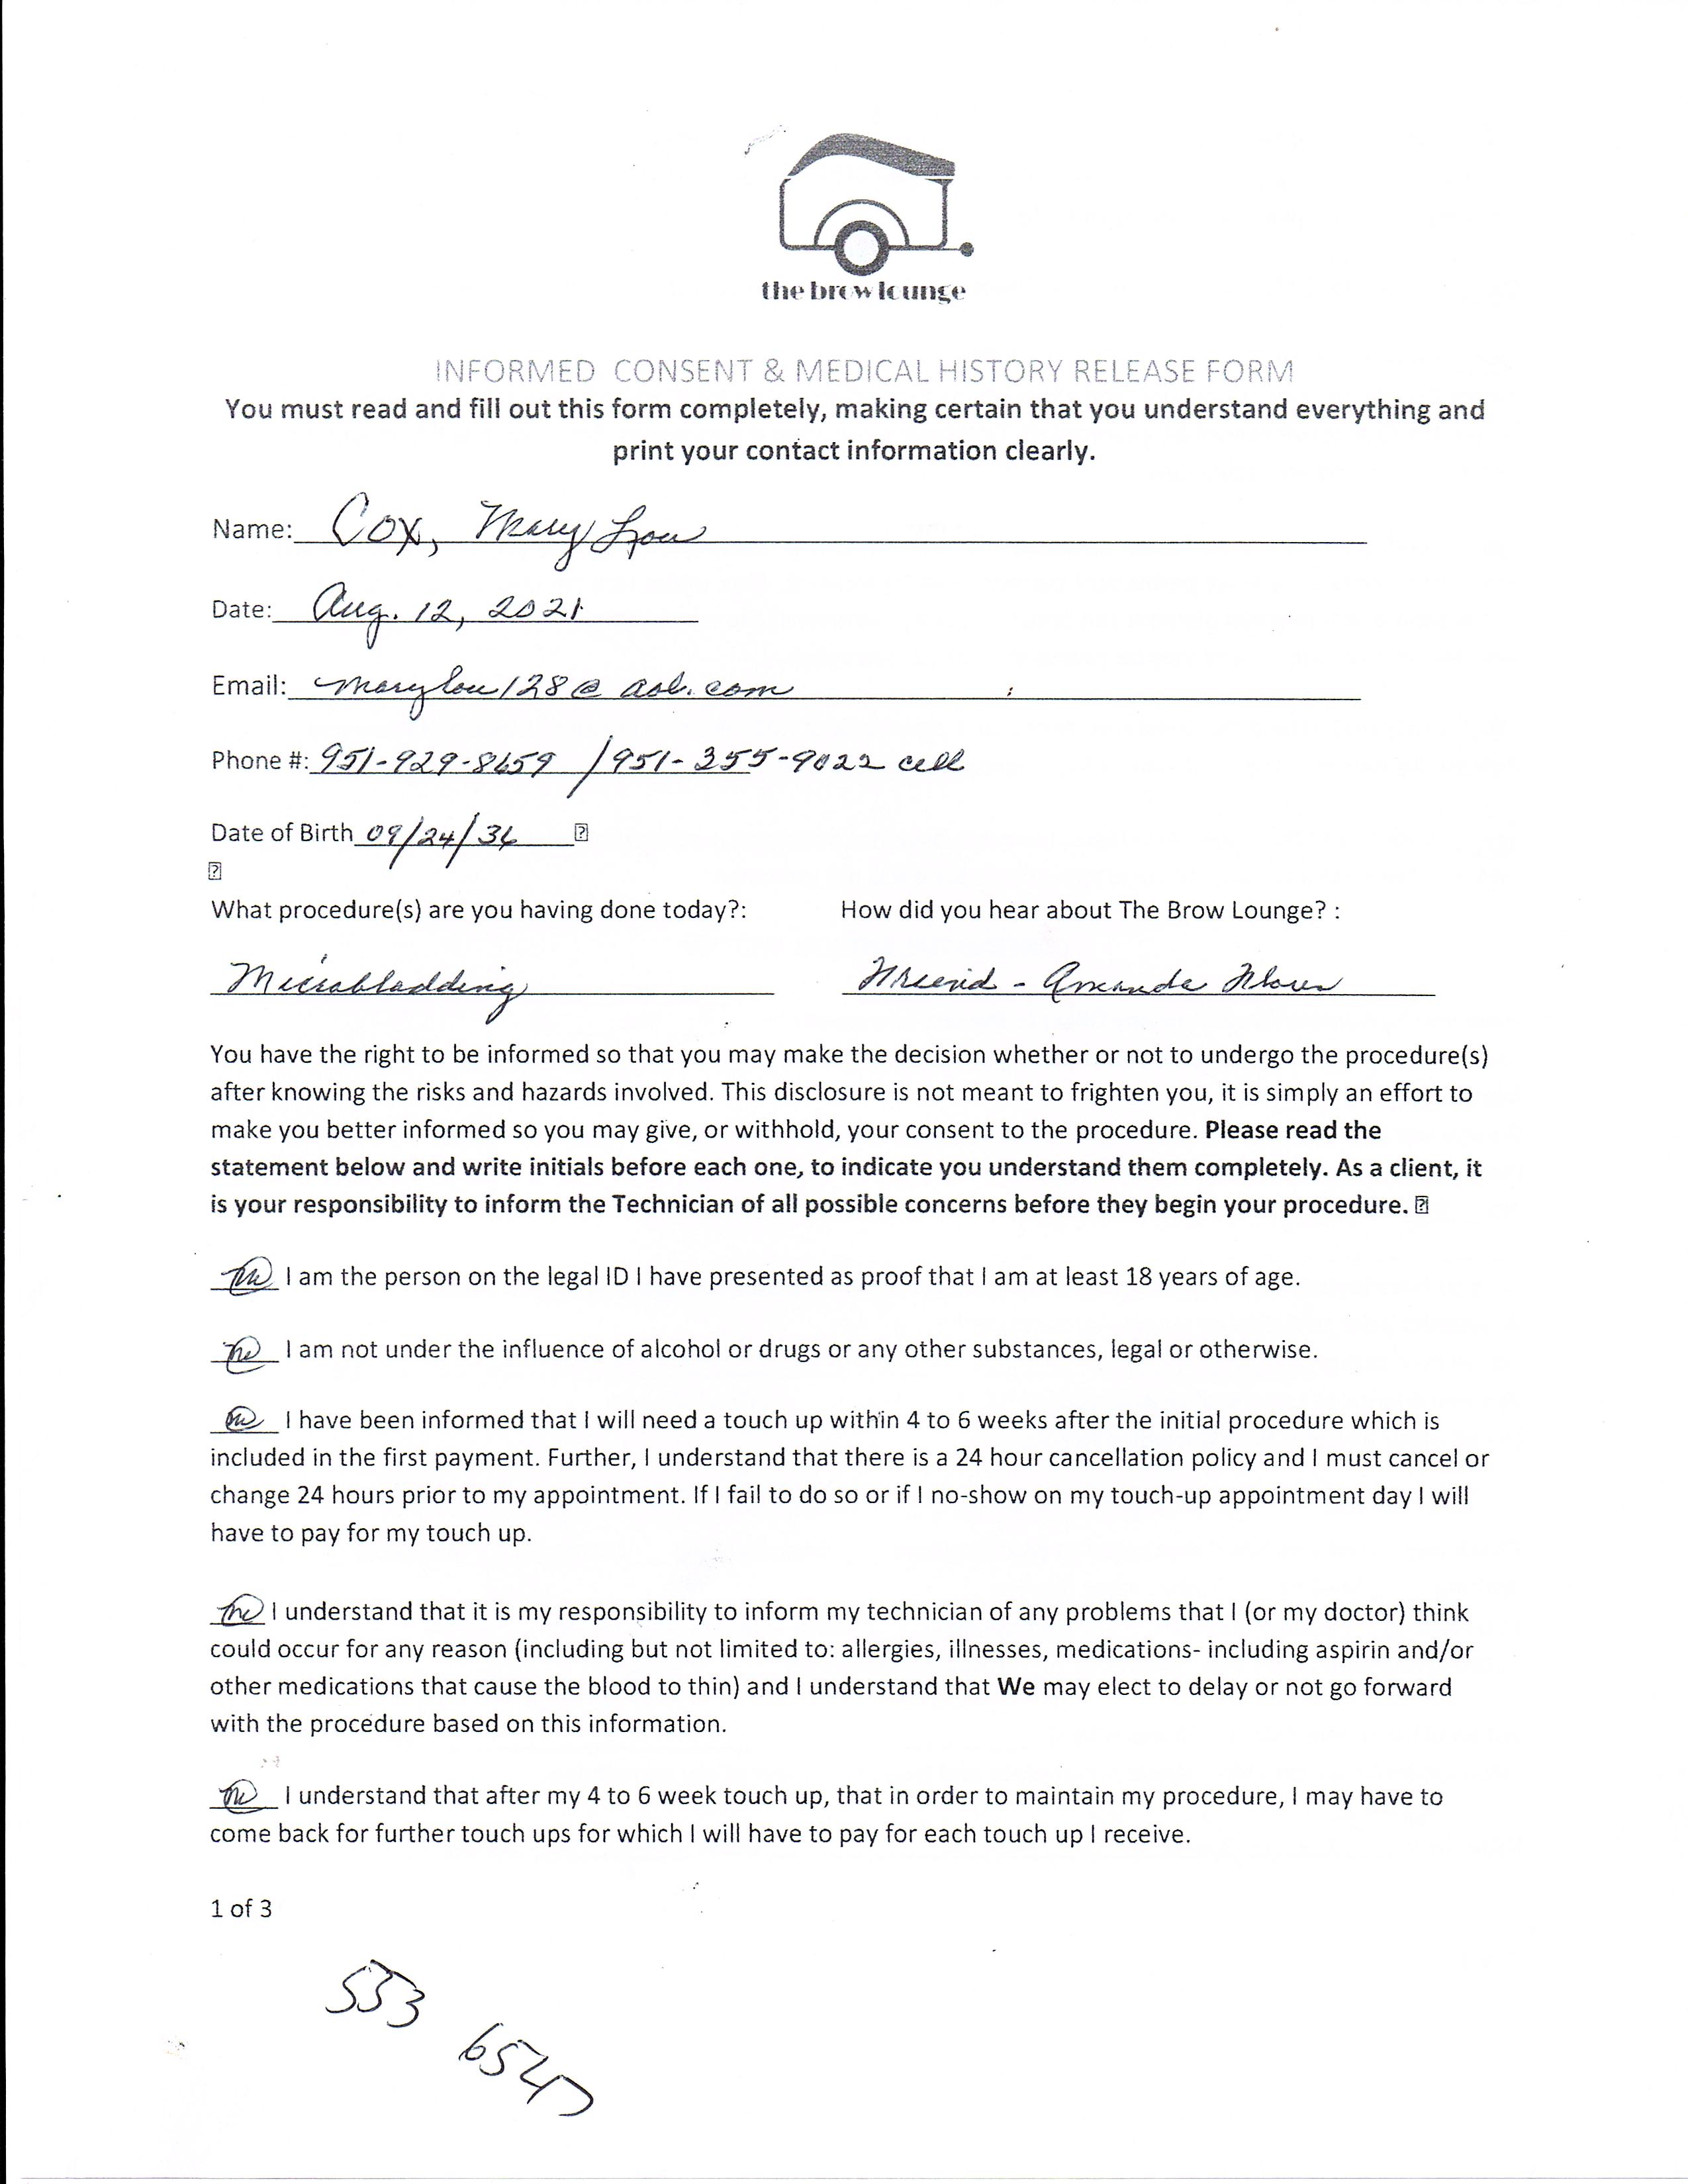 the brow lounge
INFORMED CONSENT & MEDICAL HISTORY RELEASE FORM
You must read and fill out this form completely, making certain that you understand everything and
print your contact information clearly.
Name: Cox, Mary Lou
Date: Aug. 12, 2021
Email: marylou128@aol.com
Phone #: 951-929-8659 / 951-355-9022 cell
Date of Birth 09/24/36
What procedure(s) are you having done today?: How did you hear about The Brow Lounge? :
Microbladding Friend - Amanda
You have the right to be informed so that you may make the decision whether or not to undergo the procedure(s)
after knowing the risks and hazards involved. This disclosure is not meant to frighten you, it is simply an effort to
make you better informed so you may give, or withhold, your consent to the procedure. Please read the
statement below and write initials before each one, to indicate you understand them completely. As a client, it
is your responsibility to inform the Technician of all possible concerns before they begin your procedure.
I am the person on the legal ID I have presented as proof that I am at least 18 years of age.
I am not under the influence of alcohol or drugs or any other substances, legal or otherwise.
I have been informed that I will need a touch up within 4 to 6 weeks after the initial procedure which is
included in the first payment. Further, I understand that there is a 24 hour cancellation policy and I must cancel or
change 24 hours prior to my appointment. If I fail to do so or if I no-show on my touch-up appointment day I will
have to pay for my touch up.
I understand that it is my responsibility to inform my technician of any problems that I (or my doctor) think
could occur for any reason (including but not limited to: allergies, illnesses, medications- including aspirin and/or
other medications that cause the blood to thin) and I understand that We may elect to delay or not go forward
with the procedure based on this information.
I understand that after my 4 to 6 week touch up, that in order to maintain my procedure, I may have to
come back for further touch ups for which I will have to pay for each touch up I receive.
1 of 3
533
6547